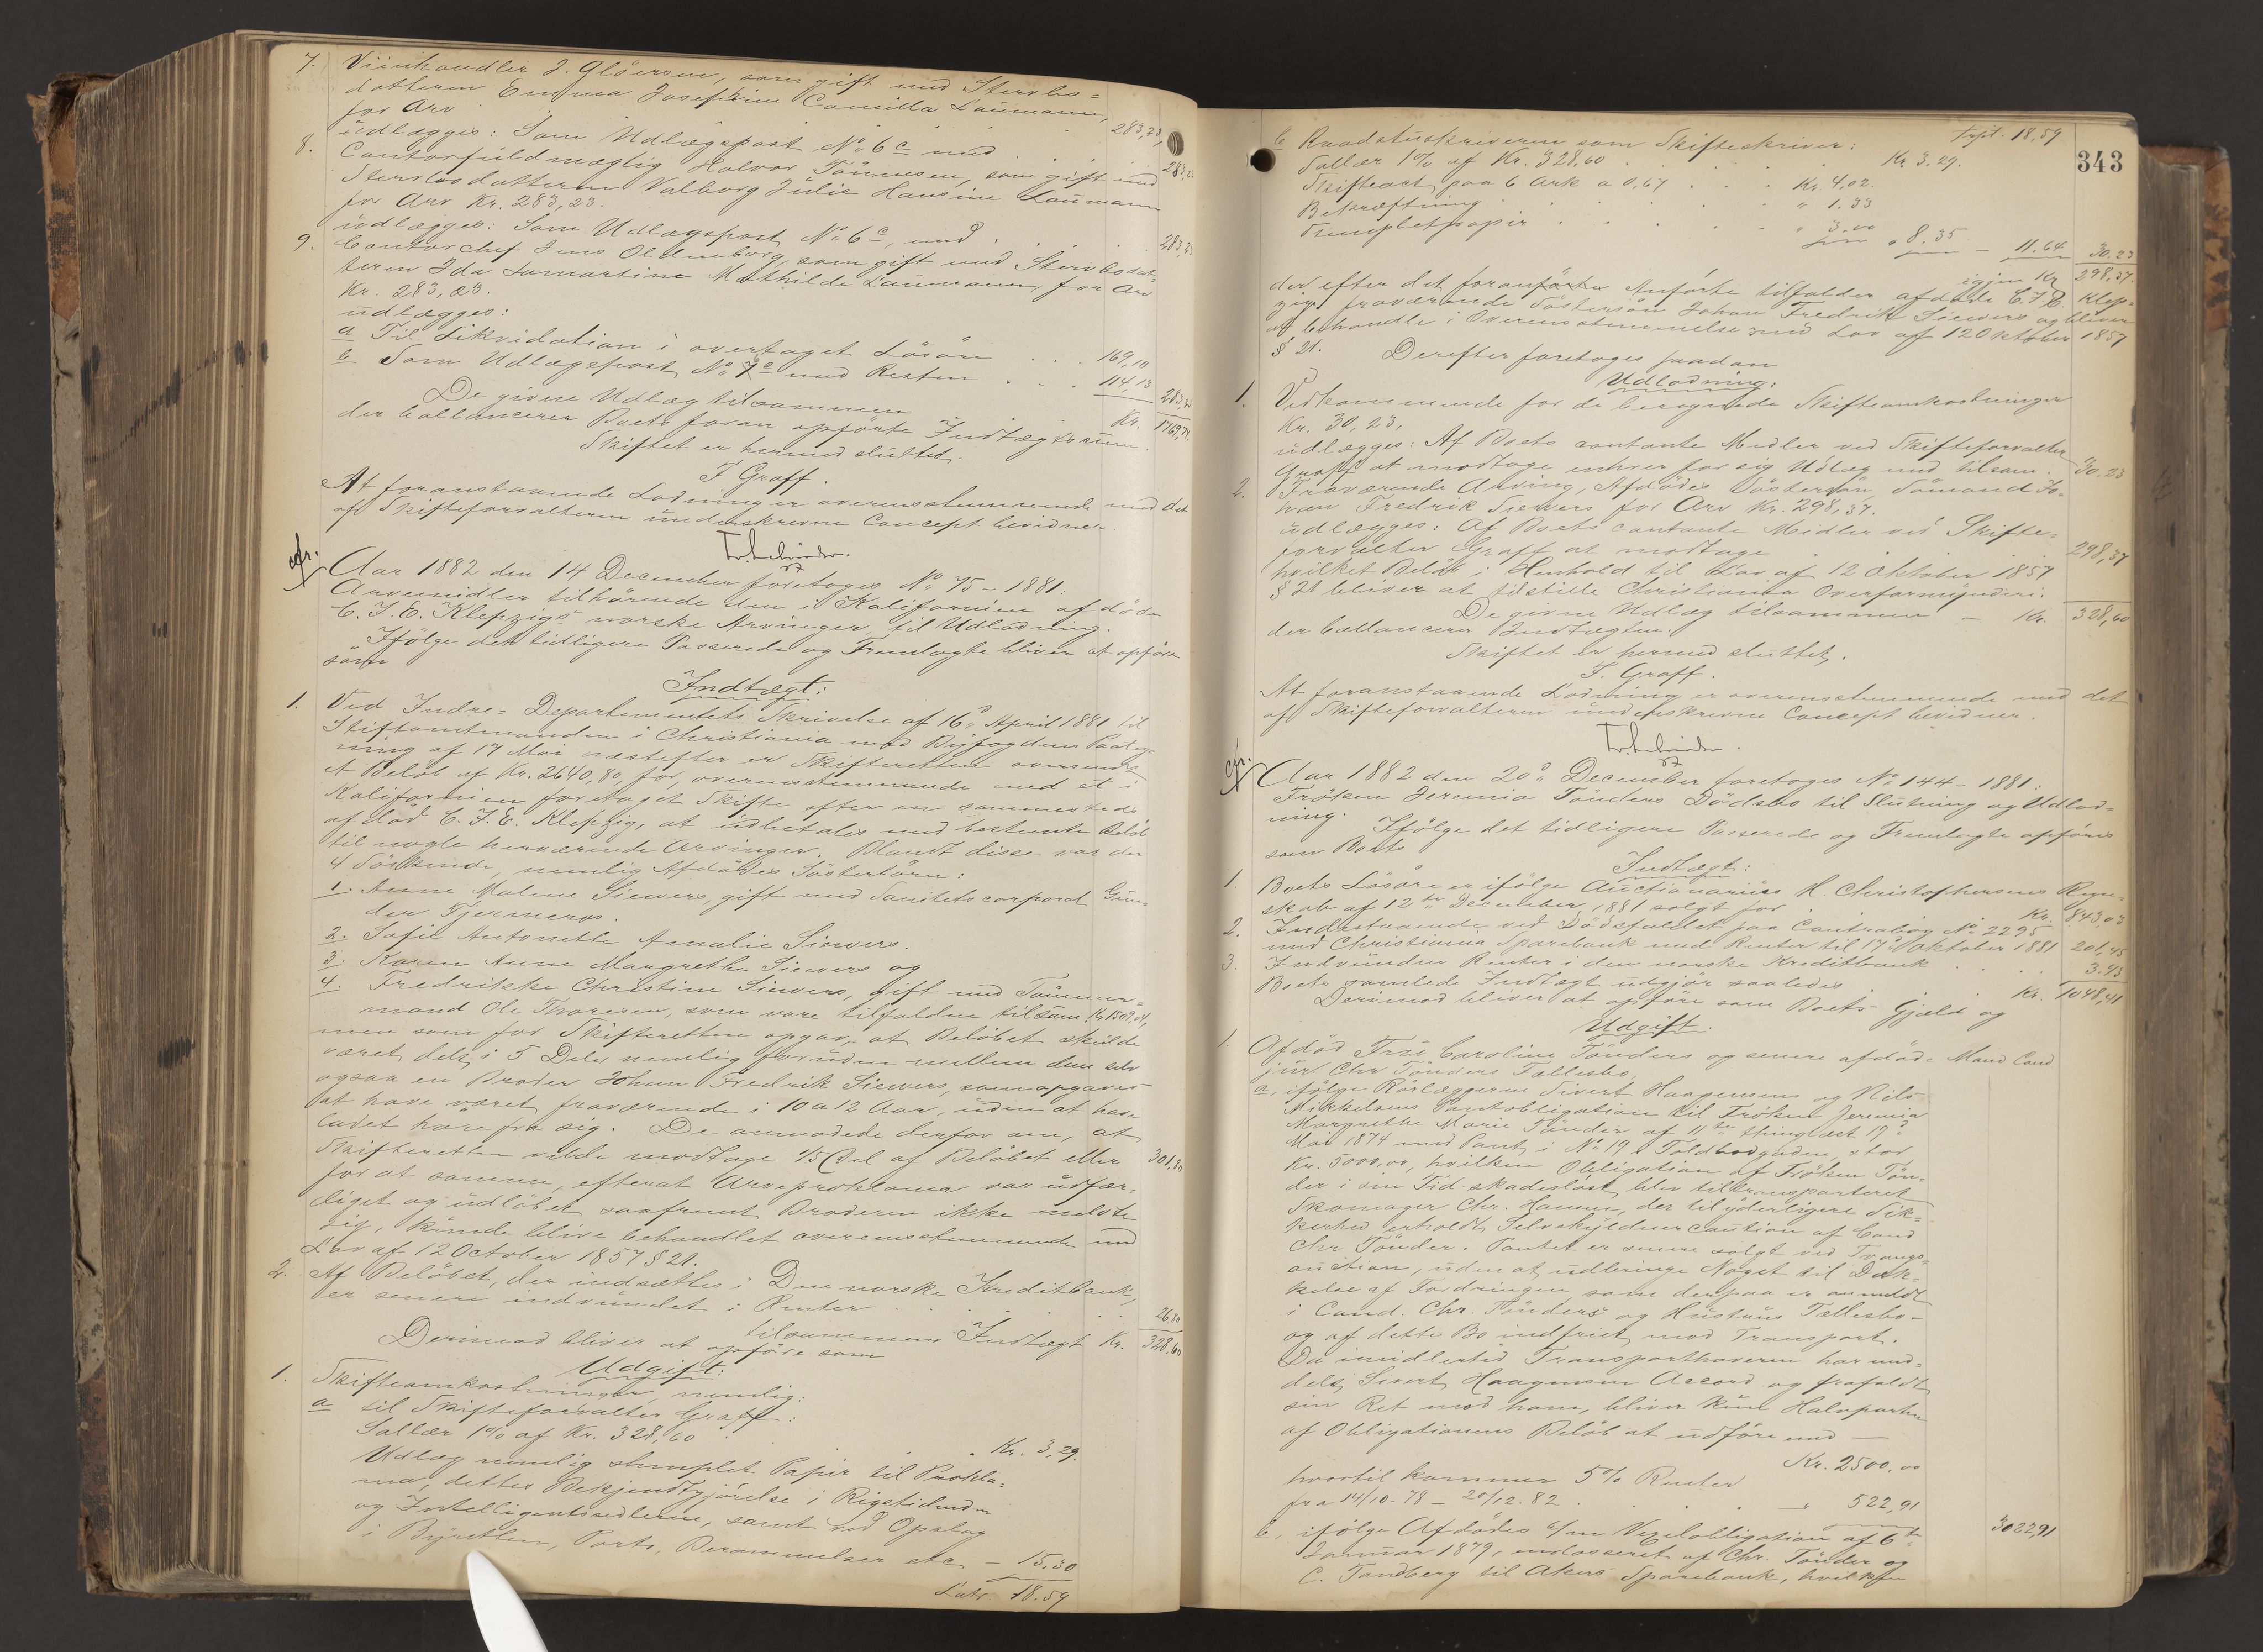 7. Viinhandler J. Glöersen, som gift med Stervbo-
datteren Emma Josefine Camilla Laumann,
for Arv 283,23,
udlægges: Som Udlægspost No 6 c med 283,23
8. Contorfuldmægtig Halvor Tönnesen, som gift med
Stervbodatteren Valborg Julie Hansine Laumann
for Arv Kr. 283,23.
udlægges: Som Udlægspost No 6 c, med 283,23
9. Contorchef Jens Oldenborg, som gift med Stervbodat-
teren Ida Lamartine Mathilde Laumann, for Arv
Kr. 283,23.
udlægges:
a Til Likvidation i overtaget Lösöre 169,10
b Som Udlægspost No 7 c med Resten 114,13 283,23
De givne Udlæg tilsammen Kr. 1769,79
der ballancerer Boets foran opförte Indtægtssum.
Skiftet er hermed sluttet.
F Graff.
At foranstaaende Lodning er overensstemmende med det
af Skifteforvalteren underskrevne Concept bevidner.
cfr. Aar 1882 den 14 December foretoges No 75 – 1881:
Arvemidler tilhörende den i Kalifornien afdöde
C. F. E. Klepzigs norske Arvinger til Udlodning.
Ifölge det tidligere Passerede og Fremlagte bliver at opföre
som
Indtægt:
1. Ved Indre-Departementets Skrivelse af 16de April 1881 til
Stiftamtmanden i Christiania med Byfogdens Paateg-
ning af 17 Mai næstefter er Skifteretten oversendt
et Belöb af Kr. 2640,80, for, overensstemmende med et i
Kalifornien foretaget Skifte efter en sammesteds
afdöd C. F. E. Klepzig, at udbetales med bestemte Belöb
til nogle herværende Arvinger. Blandt disse var der
4 Söskende, nemlig Afdödes Sösterbörn:
1. Anne Malene Siewers, gift med Sanitetscorporal Gun-
der Fjermeros.
2. Sofie Antonette Amalie Siewers.
3. Karen Anne Margrethe Siewers og
4. Fredrikke Christine Siewers, gift med Tömmer-
mand Ole Thoresen, som vare tilfalden tilsam. Kr. 1509,04,
men som for Skifteretten opgav, at Belöbet skulde
været delt i 5 Dele nemlig foruden mellem dem selv
ogsaa en Broder Johan Fredrik Siewers, som opgaves
at have været fraværende i 10 a 12 Aar, uden at have
ladet höre fra sig. De anmodede derfor om, at
Skifteretten vilde modtage 1/5 Del af Belöbet eller 301,80
for at samme, efterat Arveproklama var udfær-
diget og udlöbet saafremt Broderen ikke meldte
sig, kunde blive behandlet overensstemmende med
Lov af 12 October 1857 § 21.
2. Af Belöbet, der indsattes i Den norske Kreditbank,
er senere indvundet i Renter 26,80
tilsammens Indtægt Kr. 328,60
Derimod bliver at opföre som
Udgift:
1. Skifteomkostninger nemlig:
a til Skifteforvalter Graff:
Sallær 1% af Kr. 328,60 Kr. 3,29.
Udlæg nemlig stemplet Papir til Prokla-
ma, dettes Bekjendtgjörelse i Rigstidenden
og Intelligentssedlerne, samt ved Opslag
i Byretten, Porto, Berammelser etc – 15.30
Latr. 18.59
343
Trspt. 18,59
b Raadstuskriveren som Skifteskriver:
Sallær 1% af Kr. 328,60 Kr 3.29.
Skifteact paa 6 Ark a 0,67 Kr. 4,02.
Bekræftning " 1.33
Stempletpapir " 3.00
" 8.35 – 11.64 30.23
igjen Kr 298,37.
der efter det foranförte Anförte tilfalder afdöde C. F. E. Klep-
zigs fraværende Söstersön Johan Fredrik Siewers og bliver
at behandle i Overensstemmelse med Lov af 12 Oktober 1857
§ 21.
Derefter foretoges saadan
Udlodning:
1. Vedkommende for de beregnede Skifteomkostninger
Kr. 30,23,
udlægges: Af Boets contante Midler ved Skifteforvalter
Graff at modtage enhver for sig Udlæg med tilsam. 30.23
2. Fraværende Arving, Afdödes Söstersön, Sömand Jo-
han Fredrik Siewers for Arv Kr. 298,37.
udlægges: Af Boets contante Midler ved Skifte-
forvalter Graff at modtage 298,37
hvilket Belöb i Henhold til Lov af 12 Oktober 1857
§ 21 bliver at tilstille Christiania Overformynderi.
De givne Udlæg tilsammen – Kr. 328,60
der ballancerer Indtægten.
Skiftet er hermed sluttet.
F. Graff.
At foranstaaende Lodning er overensstemmende med det
af Skifteforvalteren underskrevne Concept bevidner.
cfr. Aar 1882 den 20de December foretoges No 144 – 1881:
Fröken Jeremia Tönders Dödsbo til Slutning og Udlod-
ning. Ifölge det tidligere Passerede og Fremlagte opföres
som Boets
Indtægt:
1. Boets Lösöre er ifölge Auctionarius H. Christophersens Regn-
skab af 12te December 1881 solgt for Kr. 843,03
2. Indestaaende ved Dödsfaldet paa Contrabog No 2295
med Christiania Sparebank med Renter til 17de Oktober 1881 201,45
3. Indvundne Renter i den norske Kreditbank 3.93
Boets samlede Indtægt udgjör saaledes Kr. 1048,41
Derimod bliver at opföre som Boets Gjæld og
Udgift:
1. Afdöd Frue Caroline Tönders og senere afdöde Mand Cand
jur. Chr Tönders Fællesbo,
a, ifölge Rörlæggerne Sivert Haagensens og Nils
Mikkelsens Pantobligation til Fröken Jeremia
Margrethe Marie Tönder af 11te thinglæst 19de
Mai 1874 med Pant i No 19 Toldbodgaden, stor
Kr. 5000,00, hvilken Obligation af Fröken Tön-
der i sin Tid skadeslöst blev tiltransporteret
Skomager Chr. Hansen, der til yderligere Sik-
kerhed erholdt Selvskyldnercaution af Cand
Chr Tönder. Pantet er senere solgt ved Tvangs-
auction, uden at udbringe Noget til Dæk-
kelse af Fordringen som derpaa er anmeldt
i Cand. Chr. Tönders og Hustrus Fællesbo-
og af dette Bo indfriet mod Transport.
Da imidlertid Transporthaveren har med-
delt Sivert Haagensen Accord og frafaldt
sin Ret mod ham, bliver kun Halvparten
af Obligationens Belöb at udföre med —
Kr. 2500,00
hvortil kommer 5% Renter
fra 14/10.78 – 20/12.82 522,91
3022,91
b, ifölge Afdödes Vexelobligation af 6te
Januar 1879, endosseret af Chr. Tönder og
C. Tandberg til Akers Sparebank, hvilken